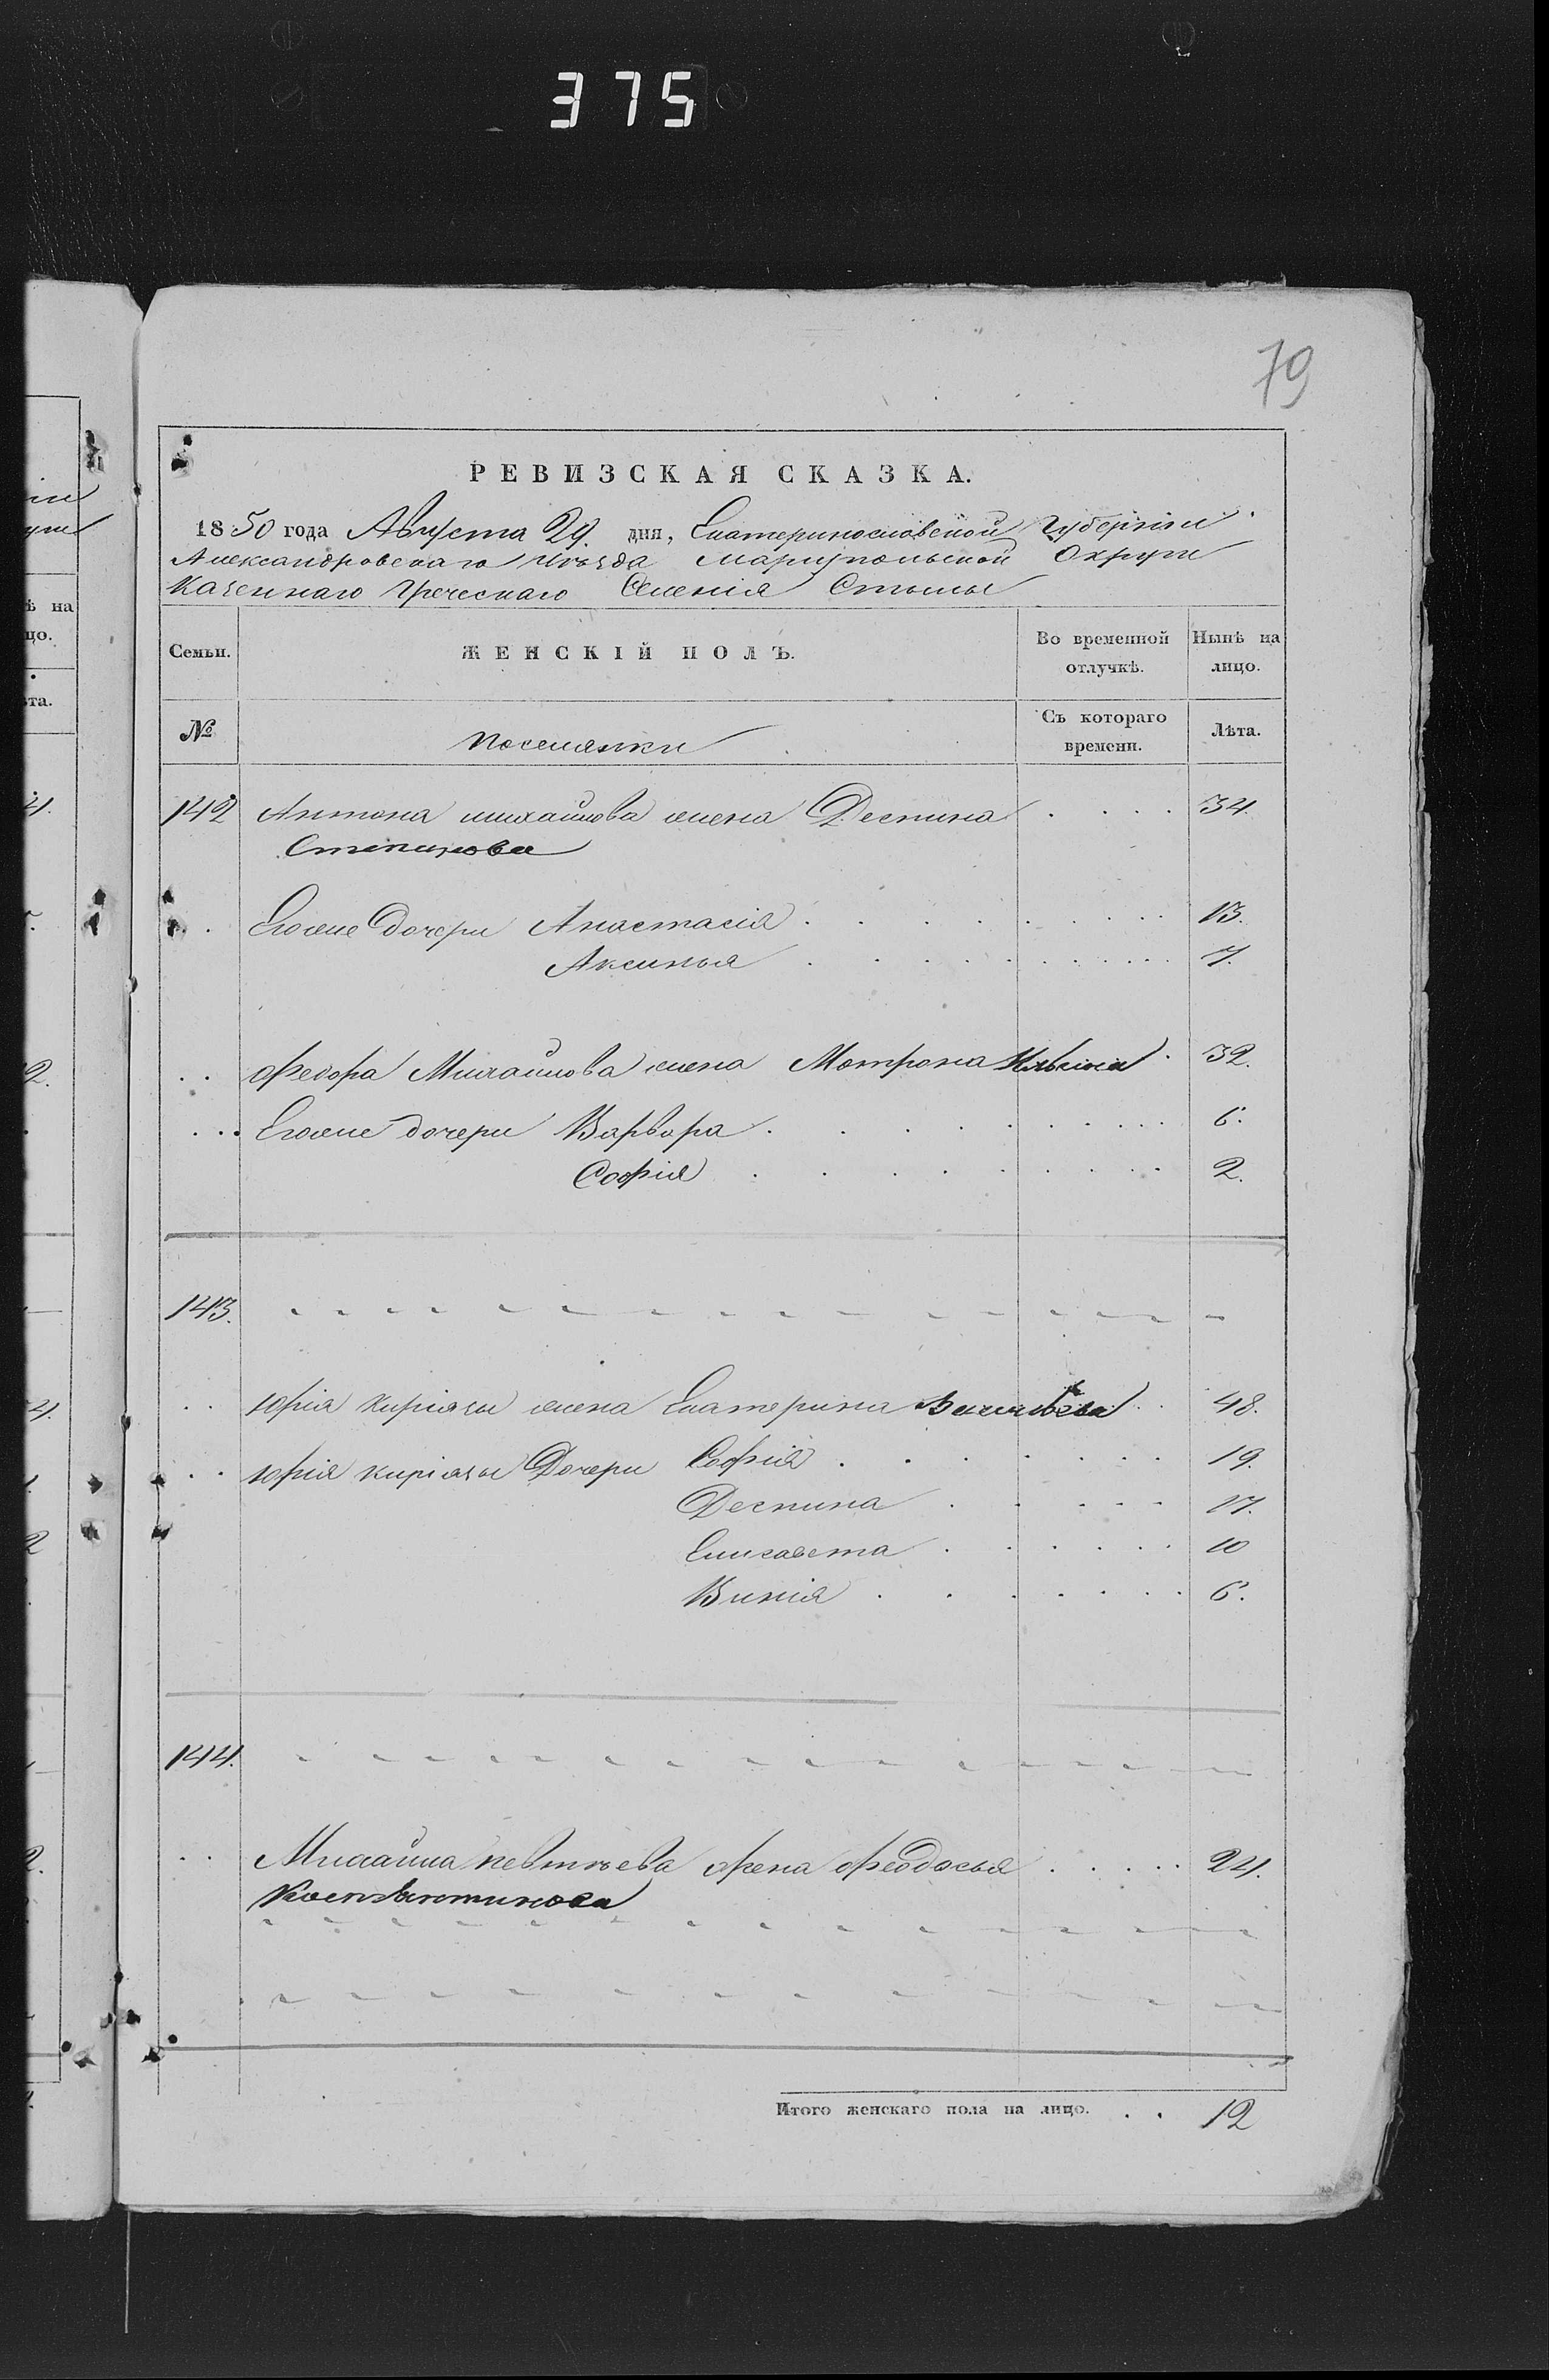 375
79
РЕВИЗСКАЯ СКАЗКА.
1850 года Августа 29. дня, Екатеринославской Губерніи
Александровскаго Уѣзда Маріупольской Округи
Казеннаго Греческаго Селенія Стылы
Семьи. ЖЕНСКІЙ ПОЛЪ. Во временной отлучкѣ. Нынѣ на лицо.
№ Поселянки Съ котораго времени. Лѣта.
142 Антона михайлова жена Деспина 34
Степанова
Егоже Дочери Анастасія 13.
Аксинья 7.
Федора Михайлова жена Мотрона Ильина 32.
Егоже дочери Варвара 6.
Софія 2.
143.
Юрія Киріязи жена Екатерина 48.
Юрія киріязи Дочери Софія 19.
Деспина 17.
Елисавета 10
Винія 6.
144.
Михайла певтіева жена Феодосья 24.
Константинова
Итого женскаго пола на лицо. 12